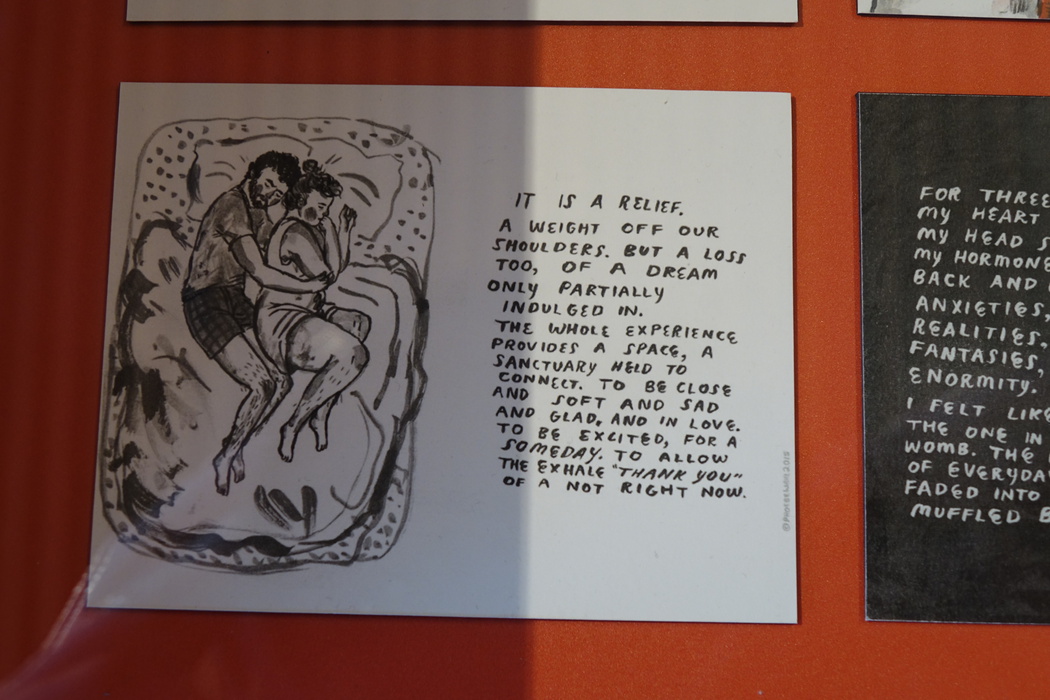 IT IS A RELIEF.
A WEIGHT OFF OUR
SHOULDERS. BUT A LOSS
TOO, OF A DREAM
ONLY PARTIALLY
INDULGED IN.
THE WHOLE EXPERIENCE
PROVIDES A SPACE, A
SANCTUARY HELD TO
CONNECT. TO BE CLOSE
AND SOFT AND SAD
AND GLAD, AND IN LOVE.
TO BE EXCITED, FOR A
SOMEDAY. TO ALLOW
THE EXHALE "THANK YOU"
OF A NOT RIGHT NOW.
FOR THREE
MY HEART
MY HEAD
MY HORMONE
BACK AND
ANXIETIES,
REALITIES,
FANTASIES,
ENORMITY.
I FELT LIKE
THE ONE IN
WOMB. THE
OF EVERYDAY
FADED INTO
MUFFLED